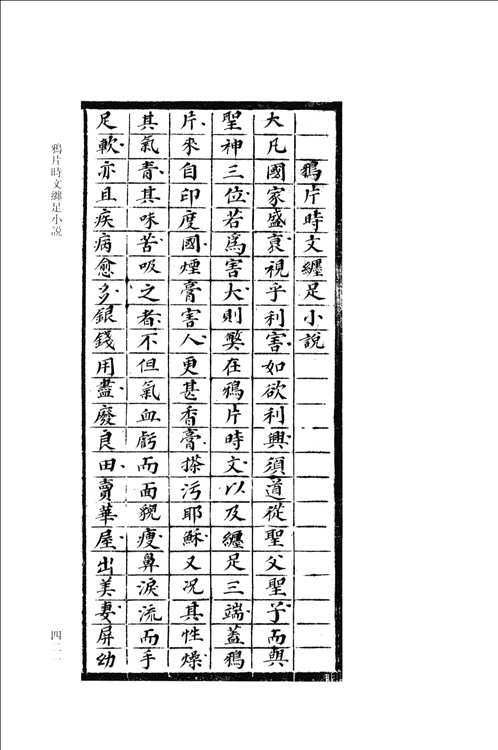 鴉片時文纏足小說
大凡國家盛衰視乎利害如欲利興須道從聖父聖子而與
聖神三位若爲害大則獘在鴉片時文以及纏足三端蓋鴉
片來自印度國煙膏害人更甚香膏搽污耶穌又况其性燥
其氣青其味苦吸之者不但氣血虧而面貌瘦鼻淚流而手
足軟亦且疾病愈多銀錢用盡廢良田賣華屋出美妻屏幼
鴉片時文纏足小説
四二一